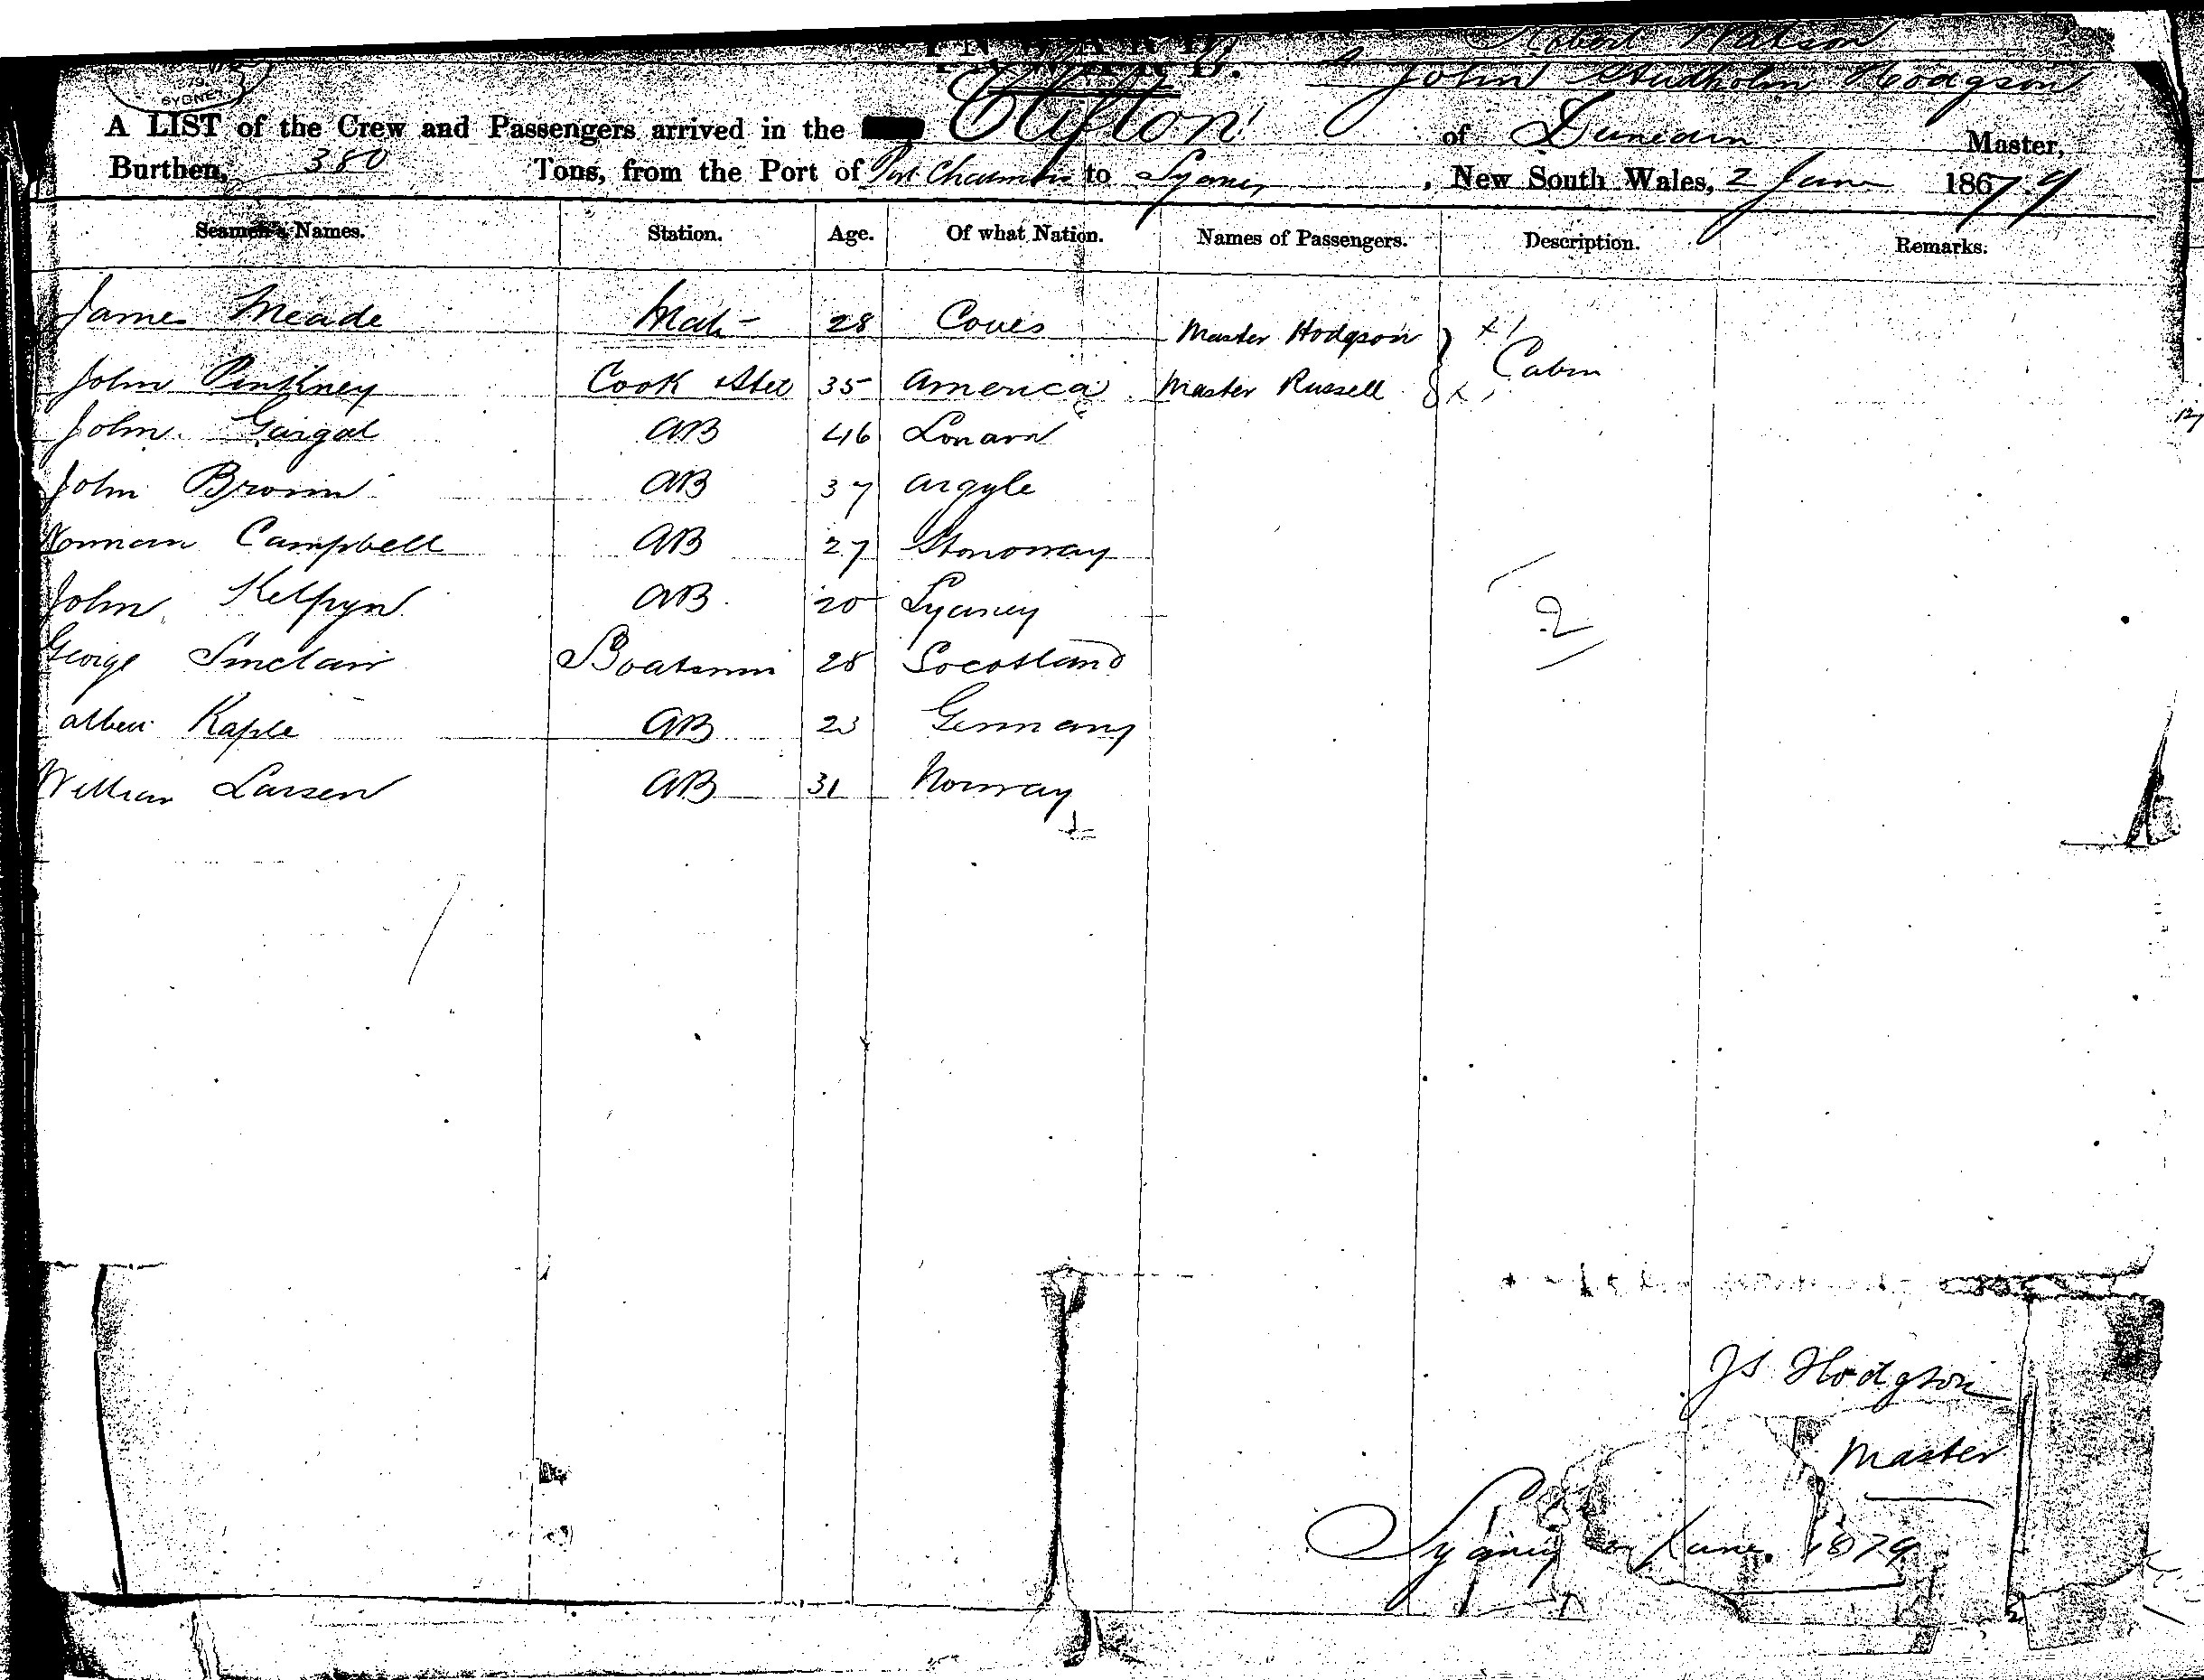 INWARD.
Robert Watson
John Studholm Hodgson
SYDNEY
A LIST of the Crew and Passengers arrived in the Clifton of Dunedin Master,
Burthen, 380 Tons, from the Port of Port Chalmers to Sydney, New South Wales, 2 June 1879
Seamen's Names. Station. Age. Of what Nation. Names of Passengers. Description. Remarks.
James Meade Mate 28 Cowes Master Hodgson
John Pinkney Cook & Stew 35 America Master Russell Cabin
John AB 46 London
John Brown AB 37 Argyle
Norman Campbell AB 27 Stornoway
John AB 20 Sydney
2
George Sinclair Boatswain 28 Socotland
Albert Kaple AB 23 Germany
William Larsen AB 31 Norway
JS Hodgson
Master
Sydney June. 1879